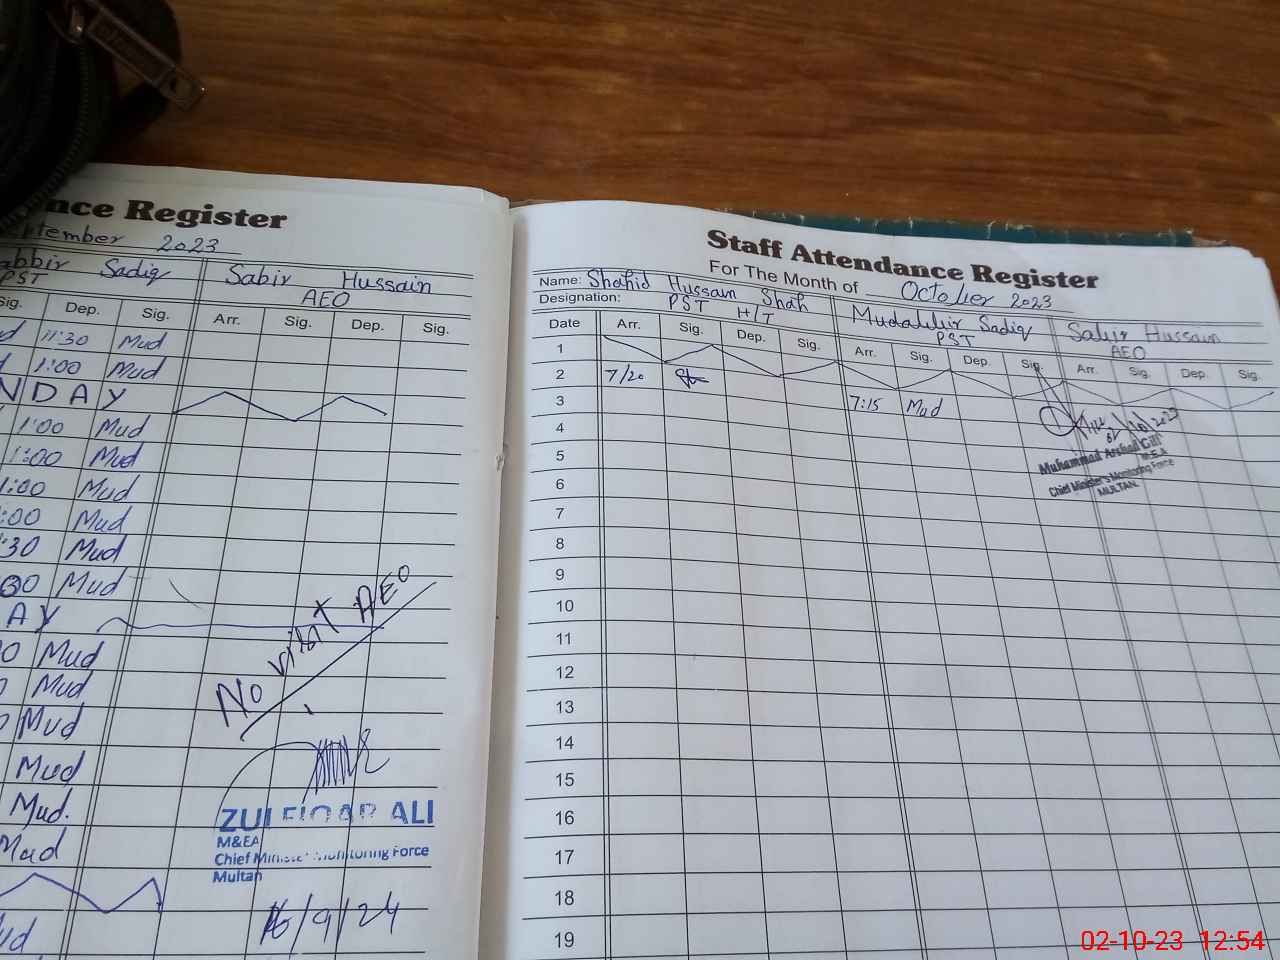 nce Register
ptember 2023
abbir Sadiq Sabir Hussain
PST AEO
Sig. Dep. Sig. Arr. Sig. Dep. Sig.
11:30 Mud
1:00 Mud
NDAY
1:00 Mud
1:00 Mud
1:00 Mud
:00 Mud
:30 Mud
30 Mud
AY
0 Mud
Mud
Mud
Mud
Mud.
Mud
No visit AEO
ZULFIQAR ALI
M&EA
Chief Minister Monitoring Force
Multan
16/9/24
ud
Staff Attendance Register
For The Month of October 2023
Name: Shahid Hussain Shah Mudabbir Sadiq Sabir Hussain
Designation: PST H/T PST AEO
Date Arr. Sig. Dep. Sig. Arr. Sig. Dep. Sig. Arr. Sig. Dep. Sig.
1
2 7/20 7:15 Mud
3
4
5
6
7
8
9
10
11
12
13
14
15
16
17
18
19
02/10/2023
Muhammad Arshad Gill
M.E.A
Chief Minister's Monitoring Force
MULTAN.
02-10-23 12:54